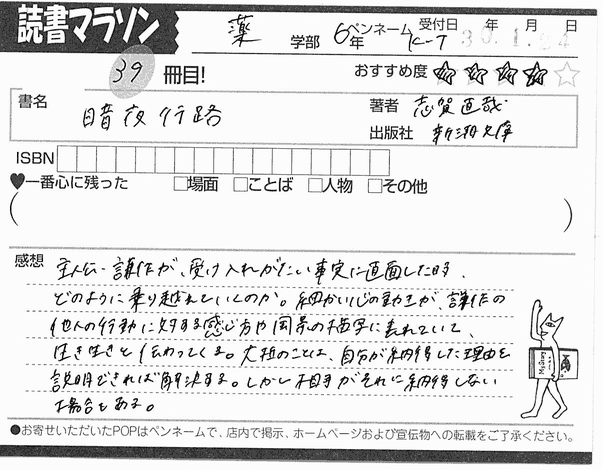 読書マラソン
薬 学部 6年 ペンネーム K-T 受付日 年 月 日
30.1.24
39 冊目! おすすめ度 ★★★★☆
書名 暗夜行路
著者 志賀直哉
出版社 新潮文庫
ISBN
♥一番心に残った □場面 □ことば □人物 □その他
( )
感想 主人公・謙作が、受け入れがたい事実に直面した時、
どのように乗り越えていくのか。細かい心の動きが、謙作の
他人の行動に対する感じ方や風景の描写に表れていて、
生き生きと伝わってくる。大抵のことは、自分が納得した理由を
説明できれば解決する。しかし相手がそれに納得しない
場合もある。
Mystery
●お寄せいただいたPOPはペンネームで、店内で掲示、ホームページおよび宣伝物への転載をご了承ください。